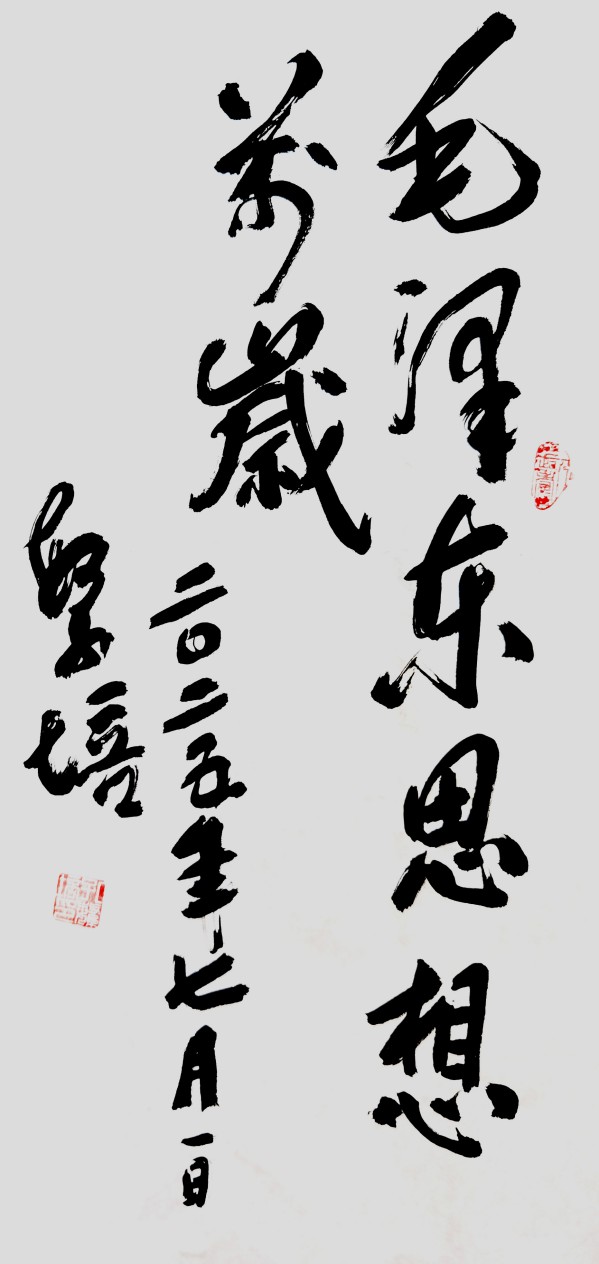 毛泽东思想
萬歲
二〇二五年七月一日
培